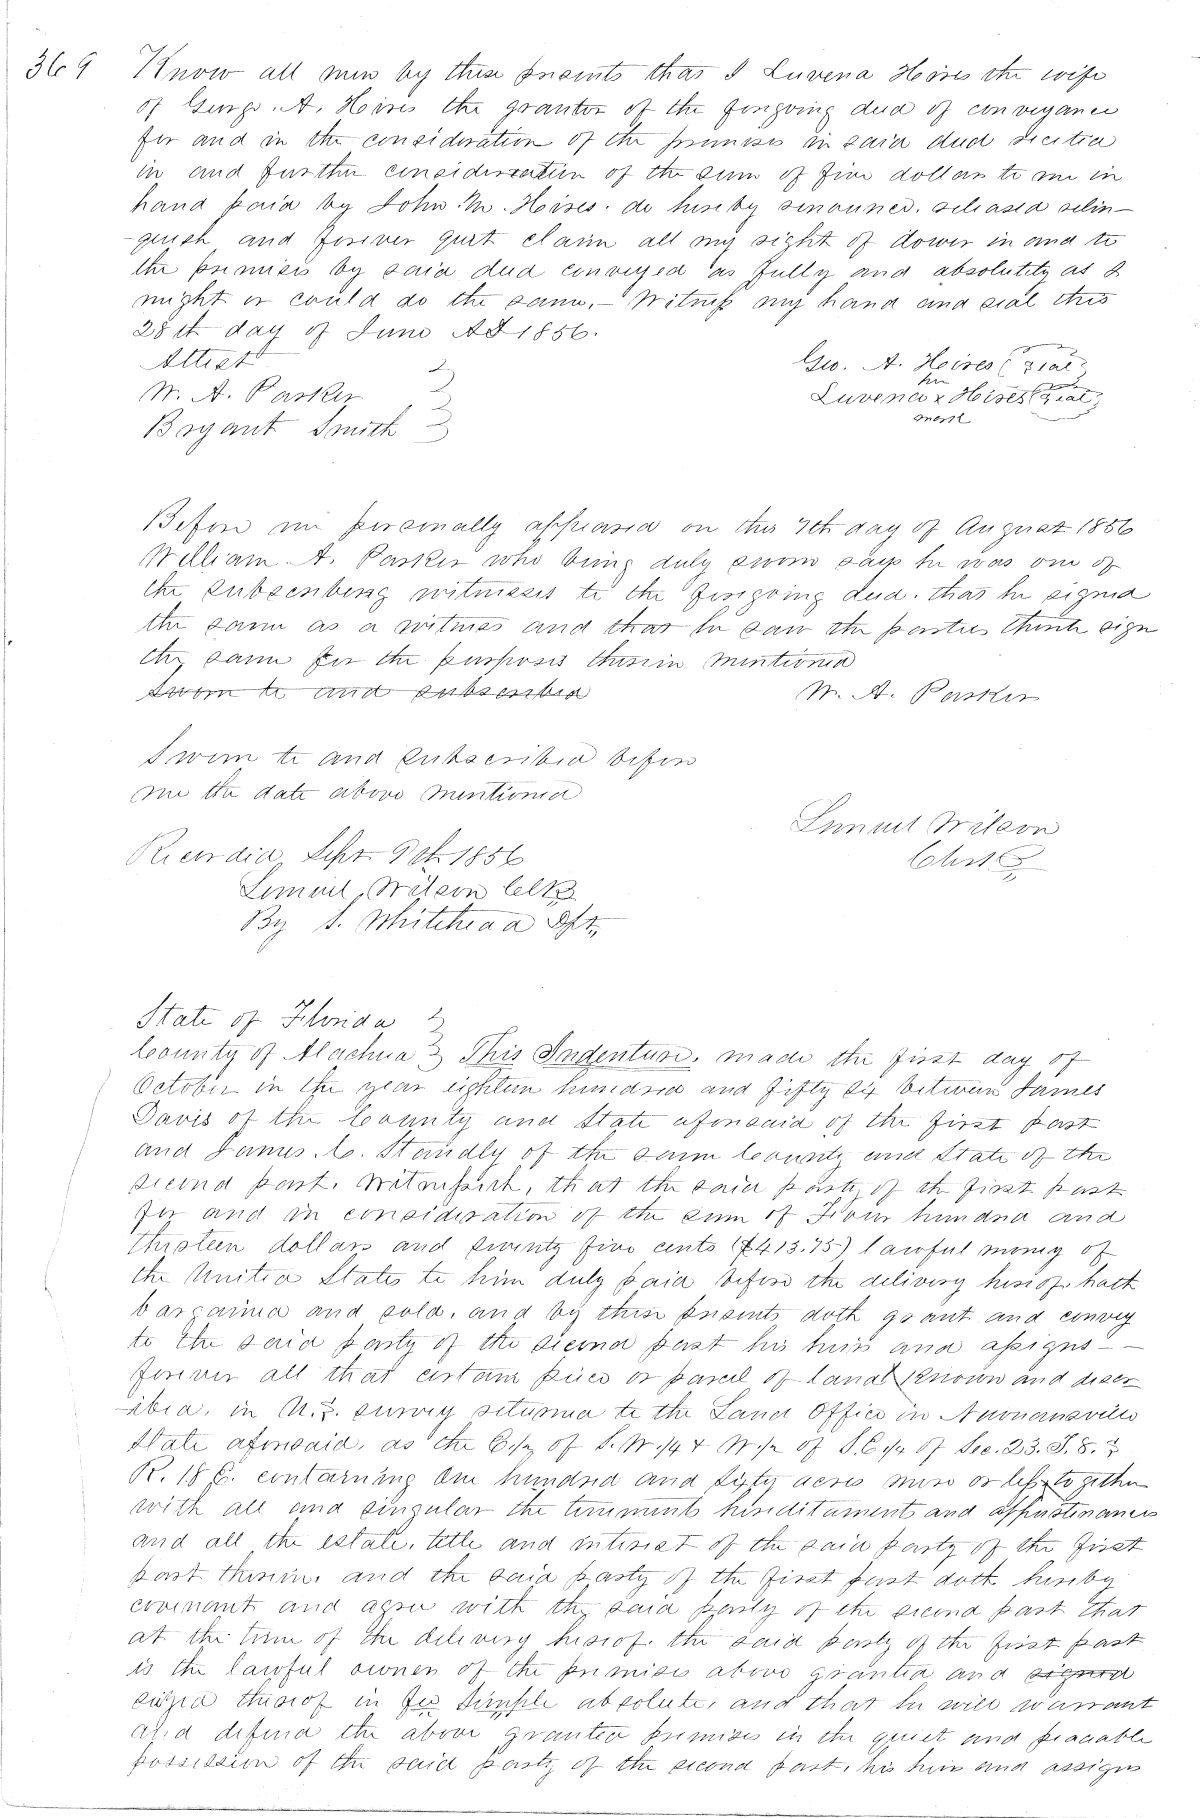 369
Know all men by these presents that I Luvena Hires the wife
of George. A. Hires the grantor of the foregoing deed of conveyance
for and in the consideration of the premises in said deed recited
in and further consideration of the sum of five dollars to me in
hand paid by John. M. Hires. do hereby renounce. released relin-
-quish and forever quit claim all my right of dower in and to
the premises by said deed conveyed as fully and absolutely as I
might or could do the same. - Witness my hand and seal this
28th day of June AD 1856.
Attest
Geo. A. Hires (Seal)
W. A. Parker
her
Luvena x Hires (Seal)
mark
Bryant Smith
Before me personally appeared on this 7th day of August 1856
William A. Parker who being duly sworn says he was one of
the subscribing witnesses to the foregoing deed. that he signed
the same as a witness and that he saw the parties thereto sign
the same for the purposes therein mentioned
Sworn to and subscribed
W. A. Parker
Sworn to and subscribed before
me the date above mentioned
Lemuel Wilson
Clerk
Recorded Sept. 9th 1856
Lemuel Wilson Clk
By S. Whitehead Dpt.
State of Florida
County of Alachua This Indenture. made the first day of
October in the year eighteen hundred and fifty six between James
Davis of the County and State aforesaid of the first part
and James. C. Standly of the same County and State of the
second part. Witnesseth, that the said party of the first part
for and in consideration of the sum of Four hundred and
thirteen dollars and seventy five cents ($413.75) lawful money of
the United States to him duly paid before the delivery hereof. hath
bargained and sold. and by these presents doth grant and convey
to the said party of the second part his heirs and assigns - -
forever all that certain piece or parcel of land known and descr
-ibed. in U.S. survey returned to the Land Office in Newnansville
State aforesaid. as the E.1/2 of S.W.1/4 & W.1/2 of S.E.1/4 of Sec. 23. T. 8. S
R. 18 E. containing One hundred and sixty acres more or less together
with all and singular the tenements hereditaments and appurtenances
and all the estate. title and interest of the said party of the first
part therein. and the said party of the first part doth hereby
covenant and agree with the said party of the second part that
at the time of the delivery hereof. the said party of the first part
is the lawful owner of the premises above granted and signed
seized thereof in fee simple absolute. and that he will warrant
and defend the above granted premises in the quiet and peacable
possession of the said party of the second part. his heirs and assigns